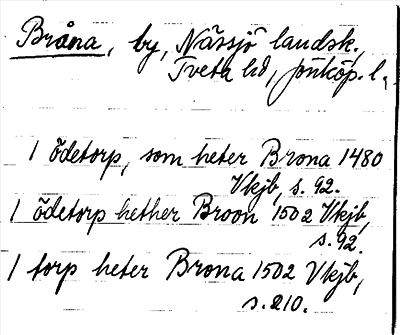 Bråna, by, Nässjö landsk.,
Tveta hd, Jönköp. l.
1 ödetorp, som heter Brona 1480
Vkjb, s. 92.
1 ödetorp hether Broon 1502 Vkjb,
s. 92.
1 torp heter Brona 1502 Vkjb,
s. 210.